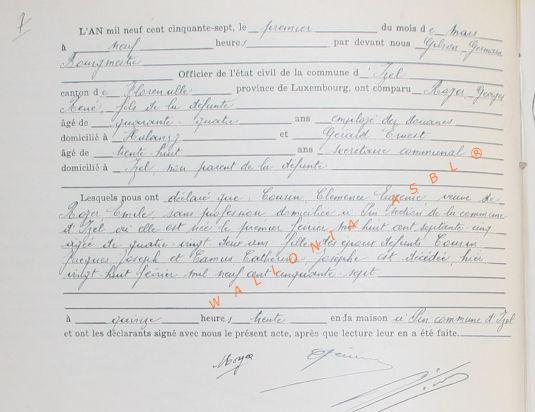 7
L'AN mil neuf cent cinquante-sept, le premier du mois de Mars
à neuf heures par devant nous Gilson, Germain
Bourgmestre
Officier de l'état civil de la commune d' Izel
canton de Florenville province de Luxembourg, ont comparu Roger, Georges
René, fils de la défunte
âgé de quarante-quatre ans employé des douanes
domicilié à Halanzy et Gérard Ernest
âgé de trente-huit ans secrétaire communal
domicilié à Izel non parent de la défunte
Lesquels nous ont déclaré que : Cousin, Clémence Eugénie veuve de
Roger Emile, sans profession domiciliée à Pin section de la commune
d'Izel où elle est née le premier février mil huit cent septante cinq
âgée de quatre vingt deux ans, fille des époux défunts Cousin
Jacques Joseph et Camus Catherine Josephe est décédée, hier
vingt-huit février mil neuf cent cinquante-sept
à quinze heures trente en la maison à Pin commune d'Izel
et ont les déclarants signé avec nous le présent acte, après que lecture leur en a été faite.
WALLONIA ASBL ®